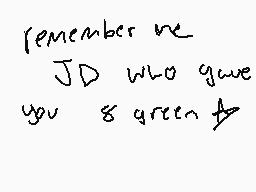 remember me
JD who gave
you 8 green ☆